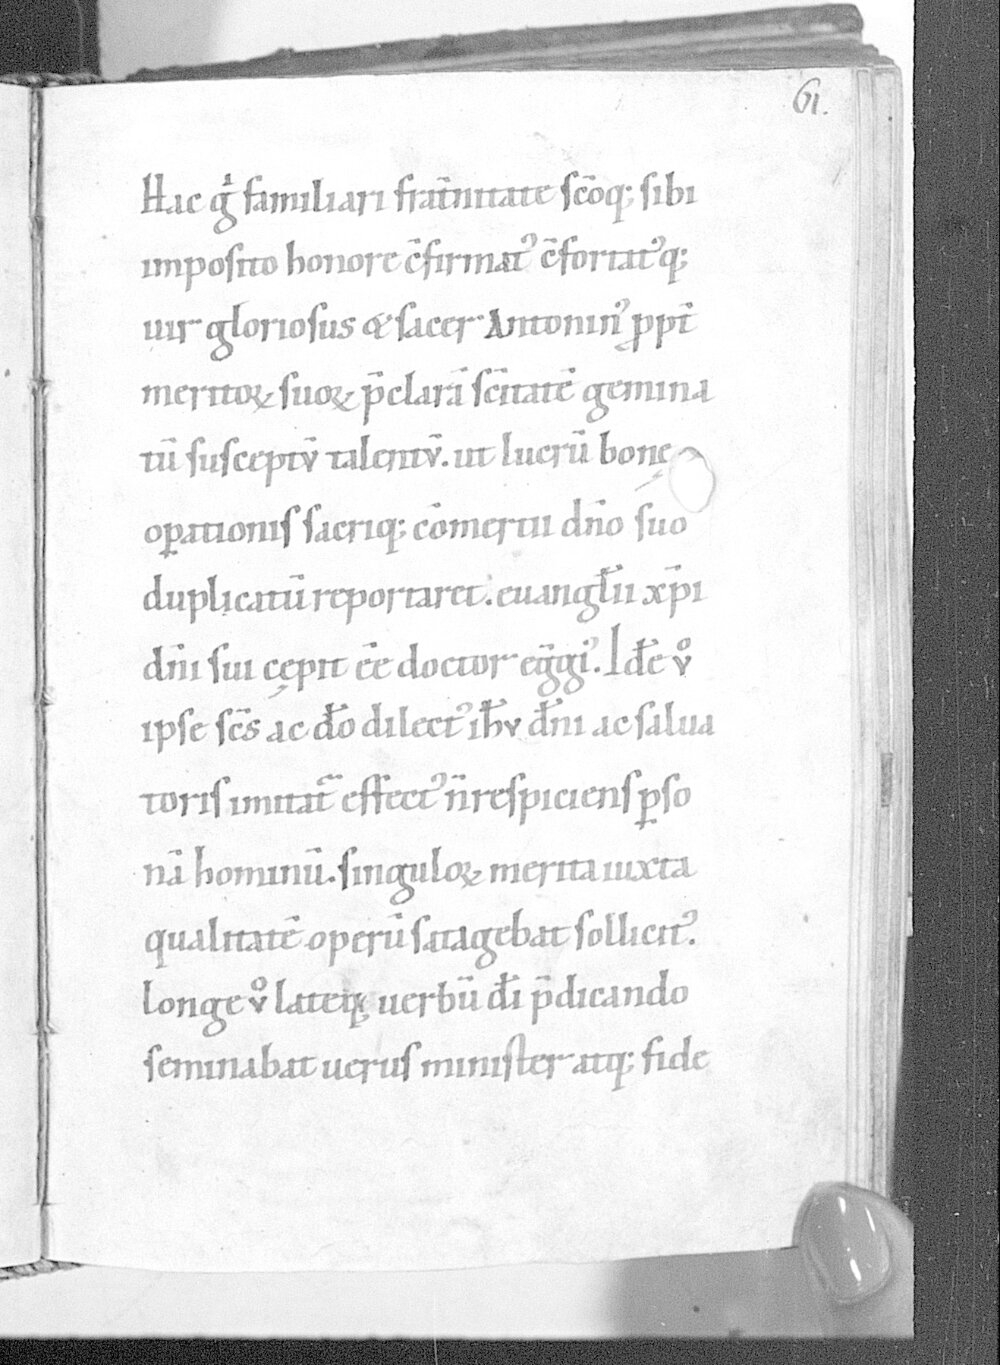 61.
Hac gͥ familiari frat̄nitate sc̄oq; sibi
imposito honore c̄firmatꝰ c̄fortatꝰq;
uir gloriosus & sacer Antoninꝰ ꝓpt̄
meritoꝝ suoꝝ p̄clarā sc̄itatē gemina
tū susceptv̄ talentv̄. ut lucrū bonę
oꝑationis sacriq; cōmertii dn̄o suo
duplicatū reportaret. euangl̄ii xp̄i
dn̄i sui cępit ēē doctor eḡgiꝰ. Id̄e vͦ
ipse sc̄s ac d̄o dilectꝰ ih̄v d̄ni ac salua
toris imitat᷑ effectꝰ n̄ respiciens ꝑso
nā hominū. singuloꝝ merita iuxta
qualitatē operū satagebat sollicitꝰ.
longe vͦ lateq; uerbū d̄i p̄dicando
seminabat uerus minister atq; fide